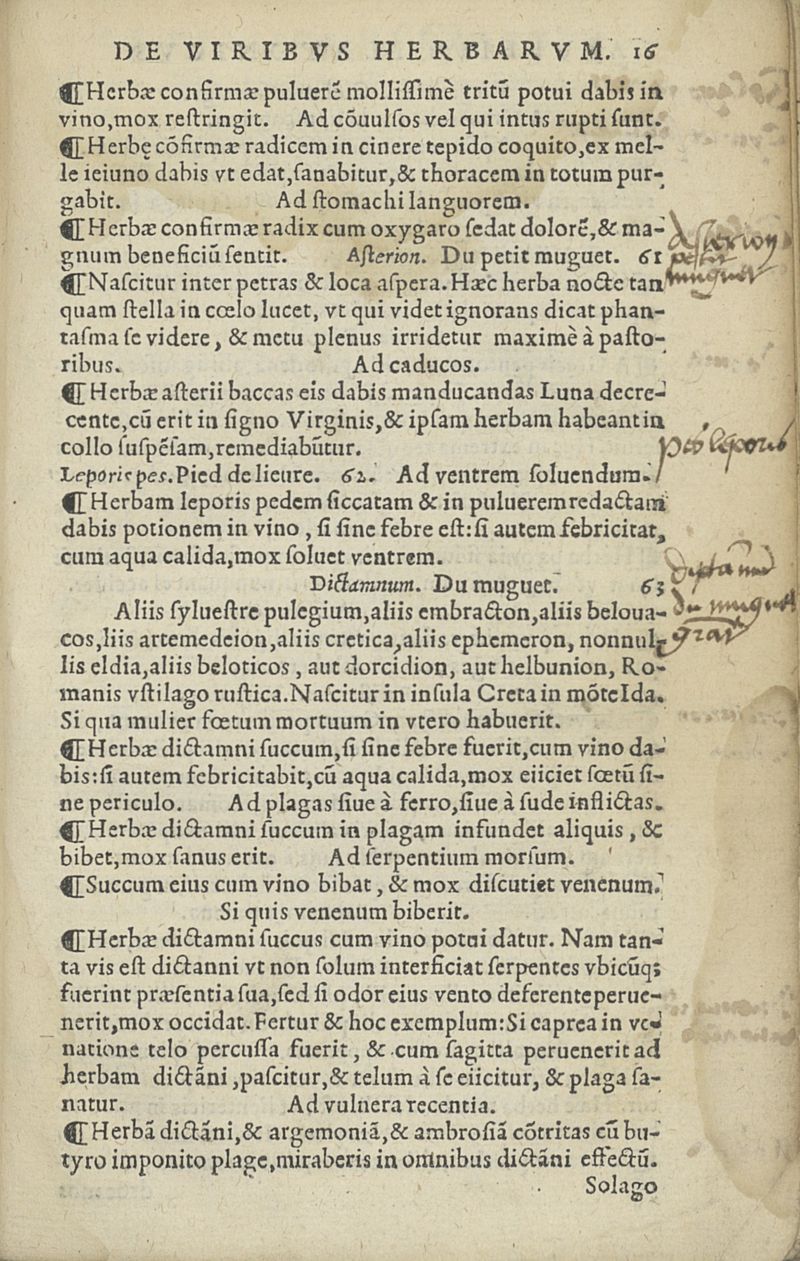 DE VIRIBVS HERBARVM. 16
¶Herbæ confirmæ puluerē mollissimè tritū potui dabis in
vino,mox restringit. Ad cōuulsos vel qui intus rupti sunt.
¶Herbę cōfirmæ radicem in cinere tepido coquito,ex mel-
le ieiuno dabis vt edat,sanabitur,& thoracem in totum pur-
gabit. Ad stomachi languorem.
¶Herbæ confirmæ radix cum oxygaro sedat dolorē,& ma-
gnum beneficiū sentit. Asterion. Du petit muguet. 61
Asterion
petit
muguet
¶Nascitur inter petras & loca aspera.Hæc herba nocte tan
quam stella in cœlo lucet, vt qui videt ignorans dicat phan-
tasma se videre, & metu plenus irridetur maximè à pasto-
ribus. Ad caducos.
¶Herbæ asterii baccas eis dabis manducandas Luna decre-
cente,cū erit in signo Virginis,& ipsam herbam habeant in
collo suspēsam,remediabūtur.
pes leporis
Leporis pes.Pied de lieure. 62. Ad ventrem soluendum.
¶Herbam leporis pedem siccatam & in puluerem redactam
dabis potionem in vino, si sine febre est:si autem febricitat,
cum aqua calida,mox soluet ventrem.
Dictamnum. Du muguet. 63
du muguet
Aliis syluestre pulegium,aliis embracton,aliis beloua-
cos,liis artemedeion,aliis cretica,aliis ephemeron, nonnul-
lis eldia,aliis beloticos, aut dorcidion, aut helbunion, Ro-
manis vstilago rustica.Nascitur in insula Creta in mōte Ida.
Si qua mulier fœtum mortuum in vtero habuerit.
¶Herbæ dictamni succum,si sine febre fuerit,cum vino da-
bis:si autem febricitabit,cū aqua calida,mox eiiciet fœtū si-
ne periculo. Ad plagas siue à ferro,siue à sude inflictas.
¶Herbæ dictamni succum in plagam infundet aliquis, &
bibet,mox sanus erit. Ad serpentium morsum.
¶Succum eius cum vino bibat, & mox discutiet venenum.
Si quis venenum biberit.
¶Herbæ dictamni succus cum vino potui datur. Nam tan-
ta vis est dictanni vt non solum interficiat serpentes vbicūq;
fuerint præsentia sua,sed si odor eius vento deferente perue-
nerit,mox occidat.Fertur & hoc exemplum:Si caprea in ve-
natione telo percussa fuerit, & cum sagitta peruenerit ad
herbam dictāni,pascitur,& telum à se eiicitur, & plaga sa-
natur. Ad vulnera recentia.
¶Herbā dictāni,& argemoniā,& ambrosiā cōtritas cū bu-
tyro imponito plagę,miraberis in omnibus dictāni effectū.
Solago